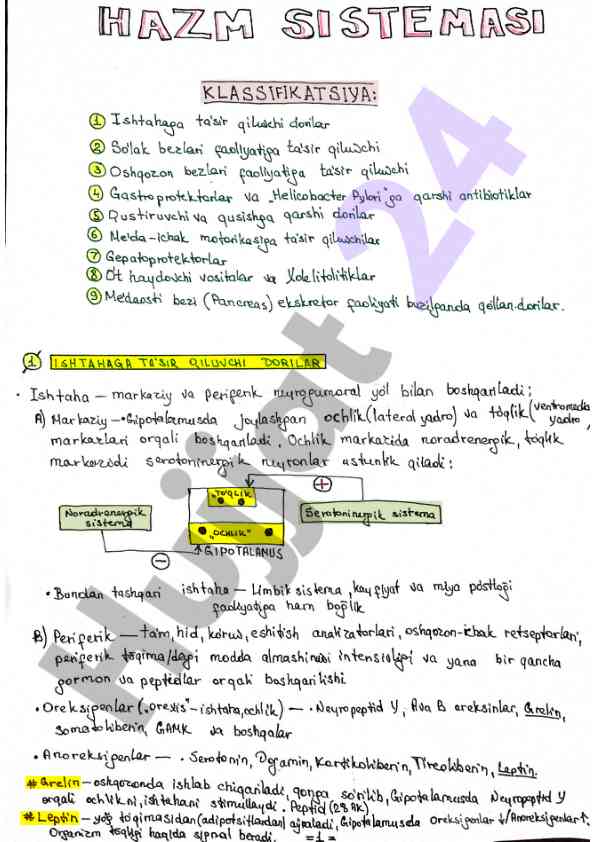 HAZM SISTEMASI
KLASSIFIKATSIYA:
1 Ishtahaga ta'sir qiluvchi dorilar
2 So'lak bezlari faoliyatiga ta'sir qiluvchi
3 Oshqozon bezlari faoliyatiga ta'sir qiluvchi
4 Gastroprotektorlar va „Helicobacter Pylori"ga qarshi antibiotiklar
5 Qustiruvchi va qusishga qarshi dorilar
6 Me'da-ichak motorikasiga ta'sir qiluvchilar
7 Gepatoprotektorlar
8 O't haydovchi vositalar va Xolelitolitiklar
9 Me'daosti bezi (Pancreas) ekskretor faoliyati buzilganda qo'llan. dorilar.
1 ISHTAHAGA TA'SIR QILUVCHI DORILAR
• Ishtaha — markaziy va periferik neyrogumoral yo'l bilan boshqariladi:
A) Markaziy — • Gipotalamusda joylashgan ochlik (lateral yadro) va to'qlik (ventromedial yadro)
markazlari orqali boshqariladi. Ochlik markazida noradrenergik, to'qlik
markazida serotoninergik neyronlar ustunlik qiladi:
„TO'QLIK"
+
Noradrenergik sistema
Serotoninergik sistema
„OCHLIK"
GIPOTALAMUS
−
• Bundan tashqari ishtaha — Limbik sistema, kayfiyat va miya po'stlog'i
faoliyatiga ham bog'lik
B) Periferik — ta'm, hid, ko'ruv, eshitish analizatorlari, oshqozon-ichak retseptorlari,
periferik to'qima/dagi modda almashinuvi intensivligi va yana bir qancha
gormon va peptidlar orqali boshqarilishi
• Oreksigenlar („orexis"-ishtaha, ochlik) — • Neyropeptid Y, A va B oreksinlar, Grelin,
somatoliberin, GAMK va boshqalar
• Anoreksigenlar — • Serotonin, Dofamin, Kortikoliberin, Tireoliberin, Leptin.
# Grelin — oshqozonda ishlab chiqariladi, qonga so'rilib, Gipotalamusda Neyropeptid Y
orqali ochlikni, ishtahani stimullaydi. Peptid (28 AK)
# Leptin — yog' to'qimasidan (adipotsitlardan) ajraladi, Gipotalamusda Oreksigenlar ↓/Anoreksigenlar ↑.
Organizm to'qligi haqida signal beradi.
=1=
Hujjat 24